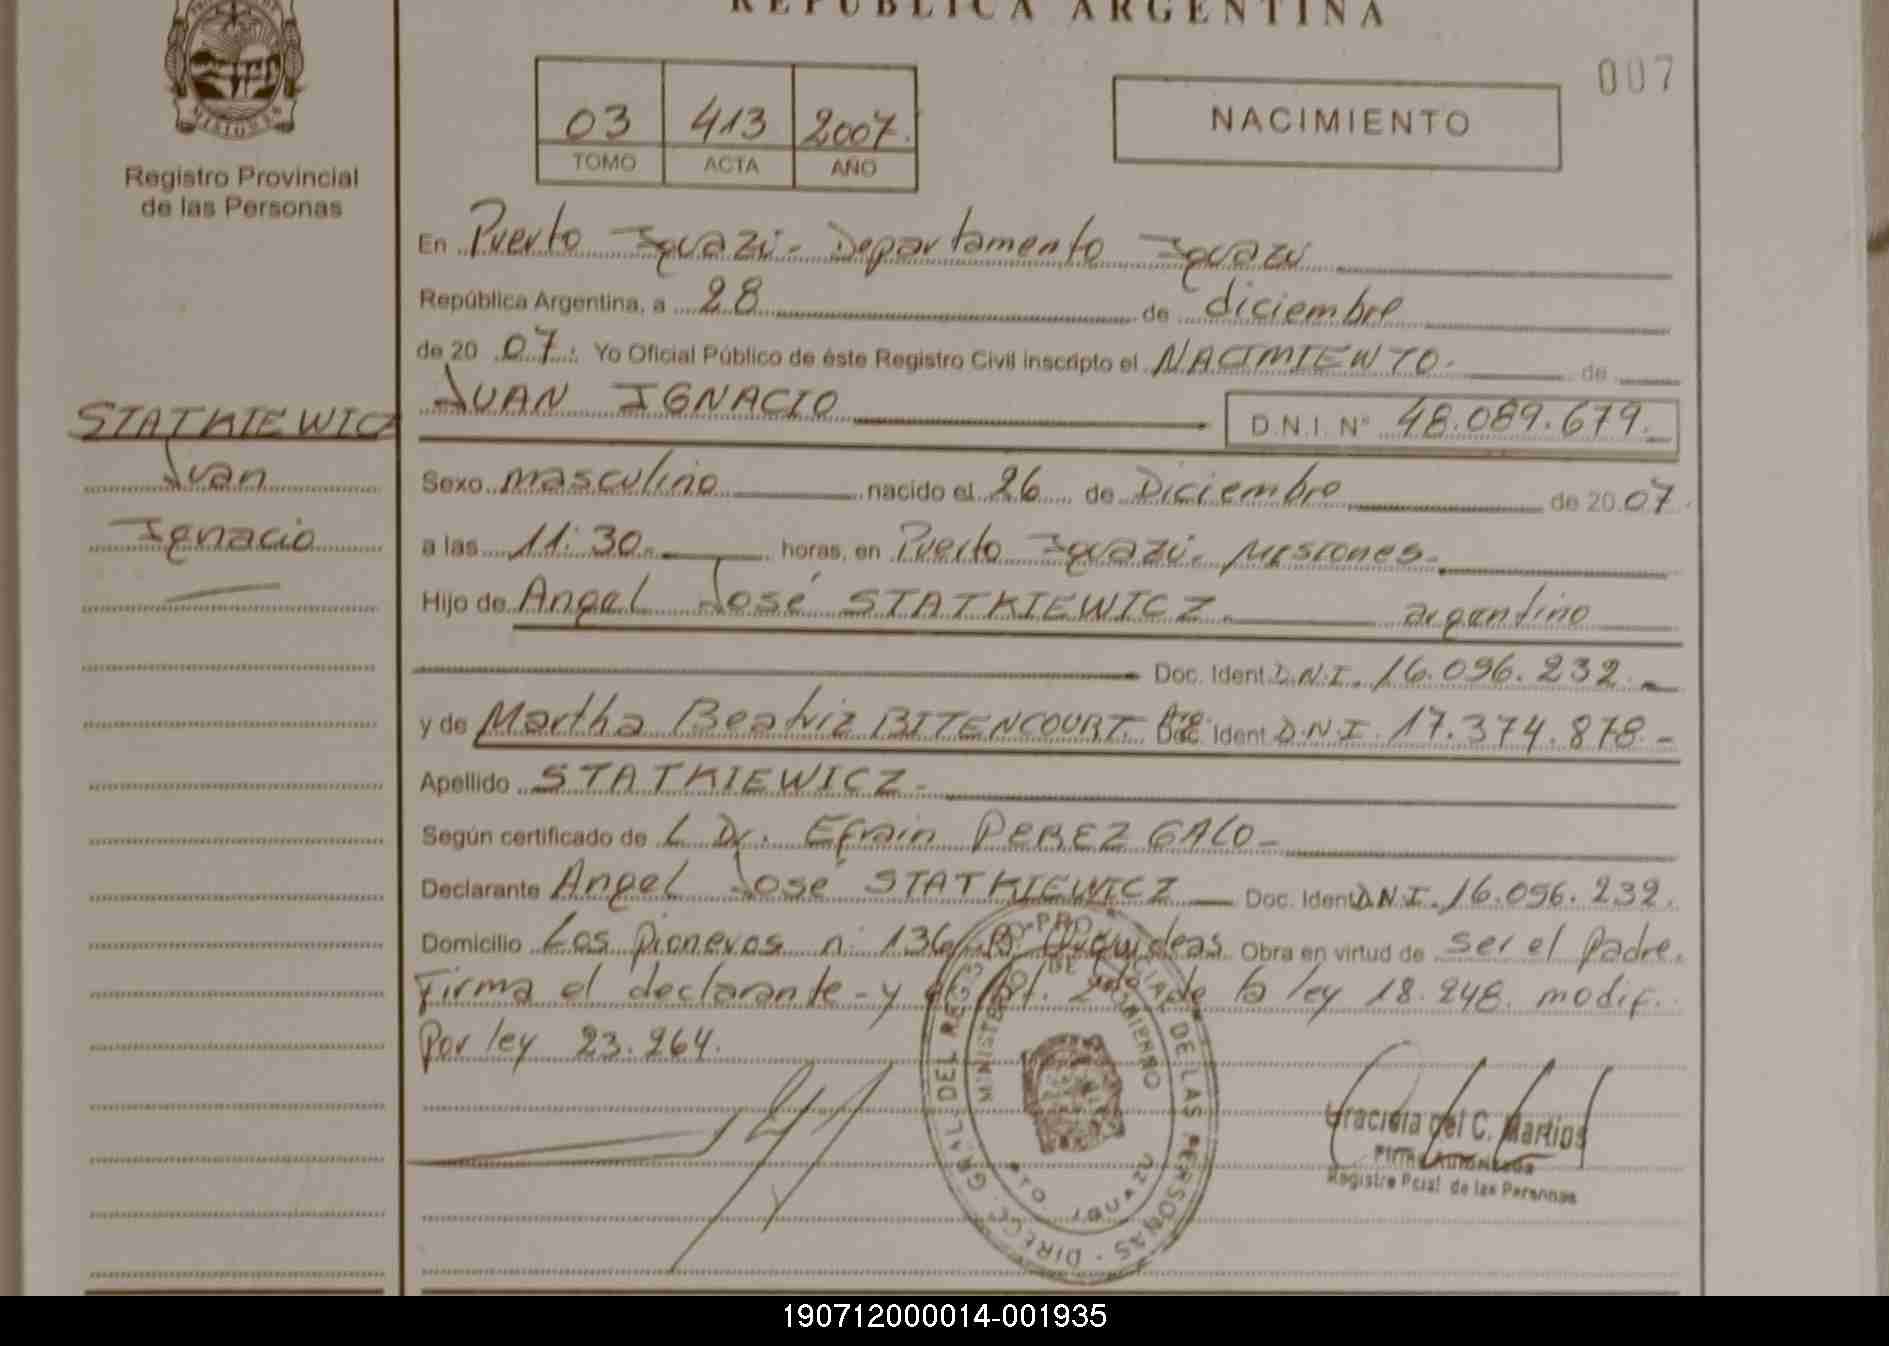 REPÚBLICA ARGENTINA
007
MISIONES
Registro Provincial
de las Personas
03 413 2007.
TOMO ACTA AÑO
NACIMIENTO
En Puerto Iguazú - Departamento Iguazú
República Argentina, a 28 de diciembre
de 20 07. Yo Oficial Público de éste Registro Civil inscripto el NACIMIENTO. de
JUAN IGNACIO D.N.I. N° 48.089.679.
STATKIEWICZ
Juan
Ignacio
Sexo masculino nacido el 26 de Diciembre de 20 07
a las 11:30 horas, en Puerto Iguazú. Misiones.
Hijo de Angel José STATKIEWICZ. argentino
Doc. Ident D.N.I. 16.096.232.
y de Martha Beatriz BITENCOURT. Arg. Doc. Ident D.N.I. 17.374.878.-
Apellido STATKIEWICZ.-
Según certificado de L Dr. Efrain PEREZ GALO-
Declarante Angel José STATKIEWICZ Doc. Ident D.N.I. 16.096.232.
Domicilio Los pioneros n° 136 B° Orquideas Obra en virtud de ser el padre.
Firma el declarante - y Art. 2do de la ley 18.248. modif.
Por ley 23.264.
DIRECC. GRAL. DEL REG. PROVINCIAL DE LAS PERSONAS
MINISTERIO DE GOBIERNO
PTO. IGUAZU
Graciela del C. Martins
Firma Autorizada
Registro Pcial. de las Personas
190712000014-001935